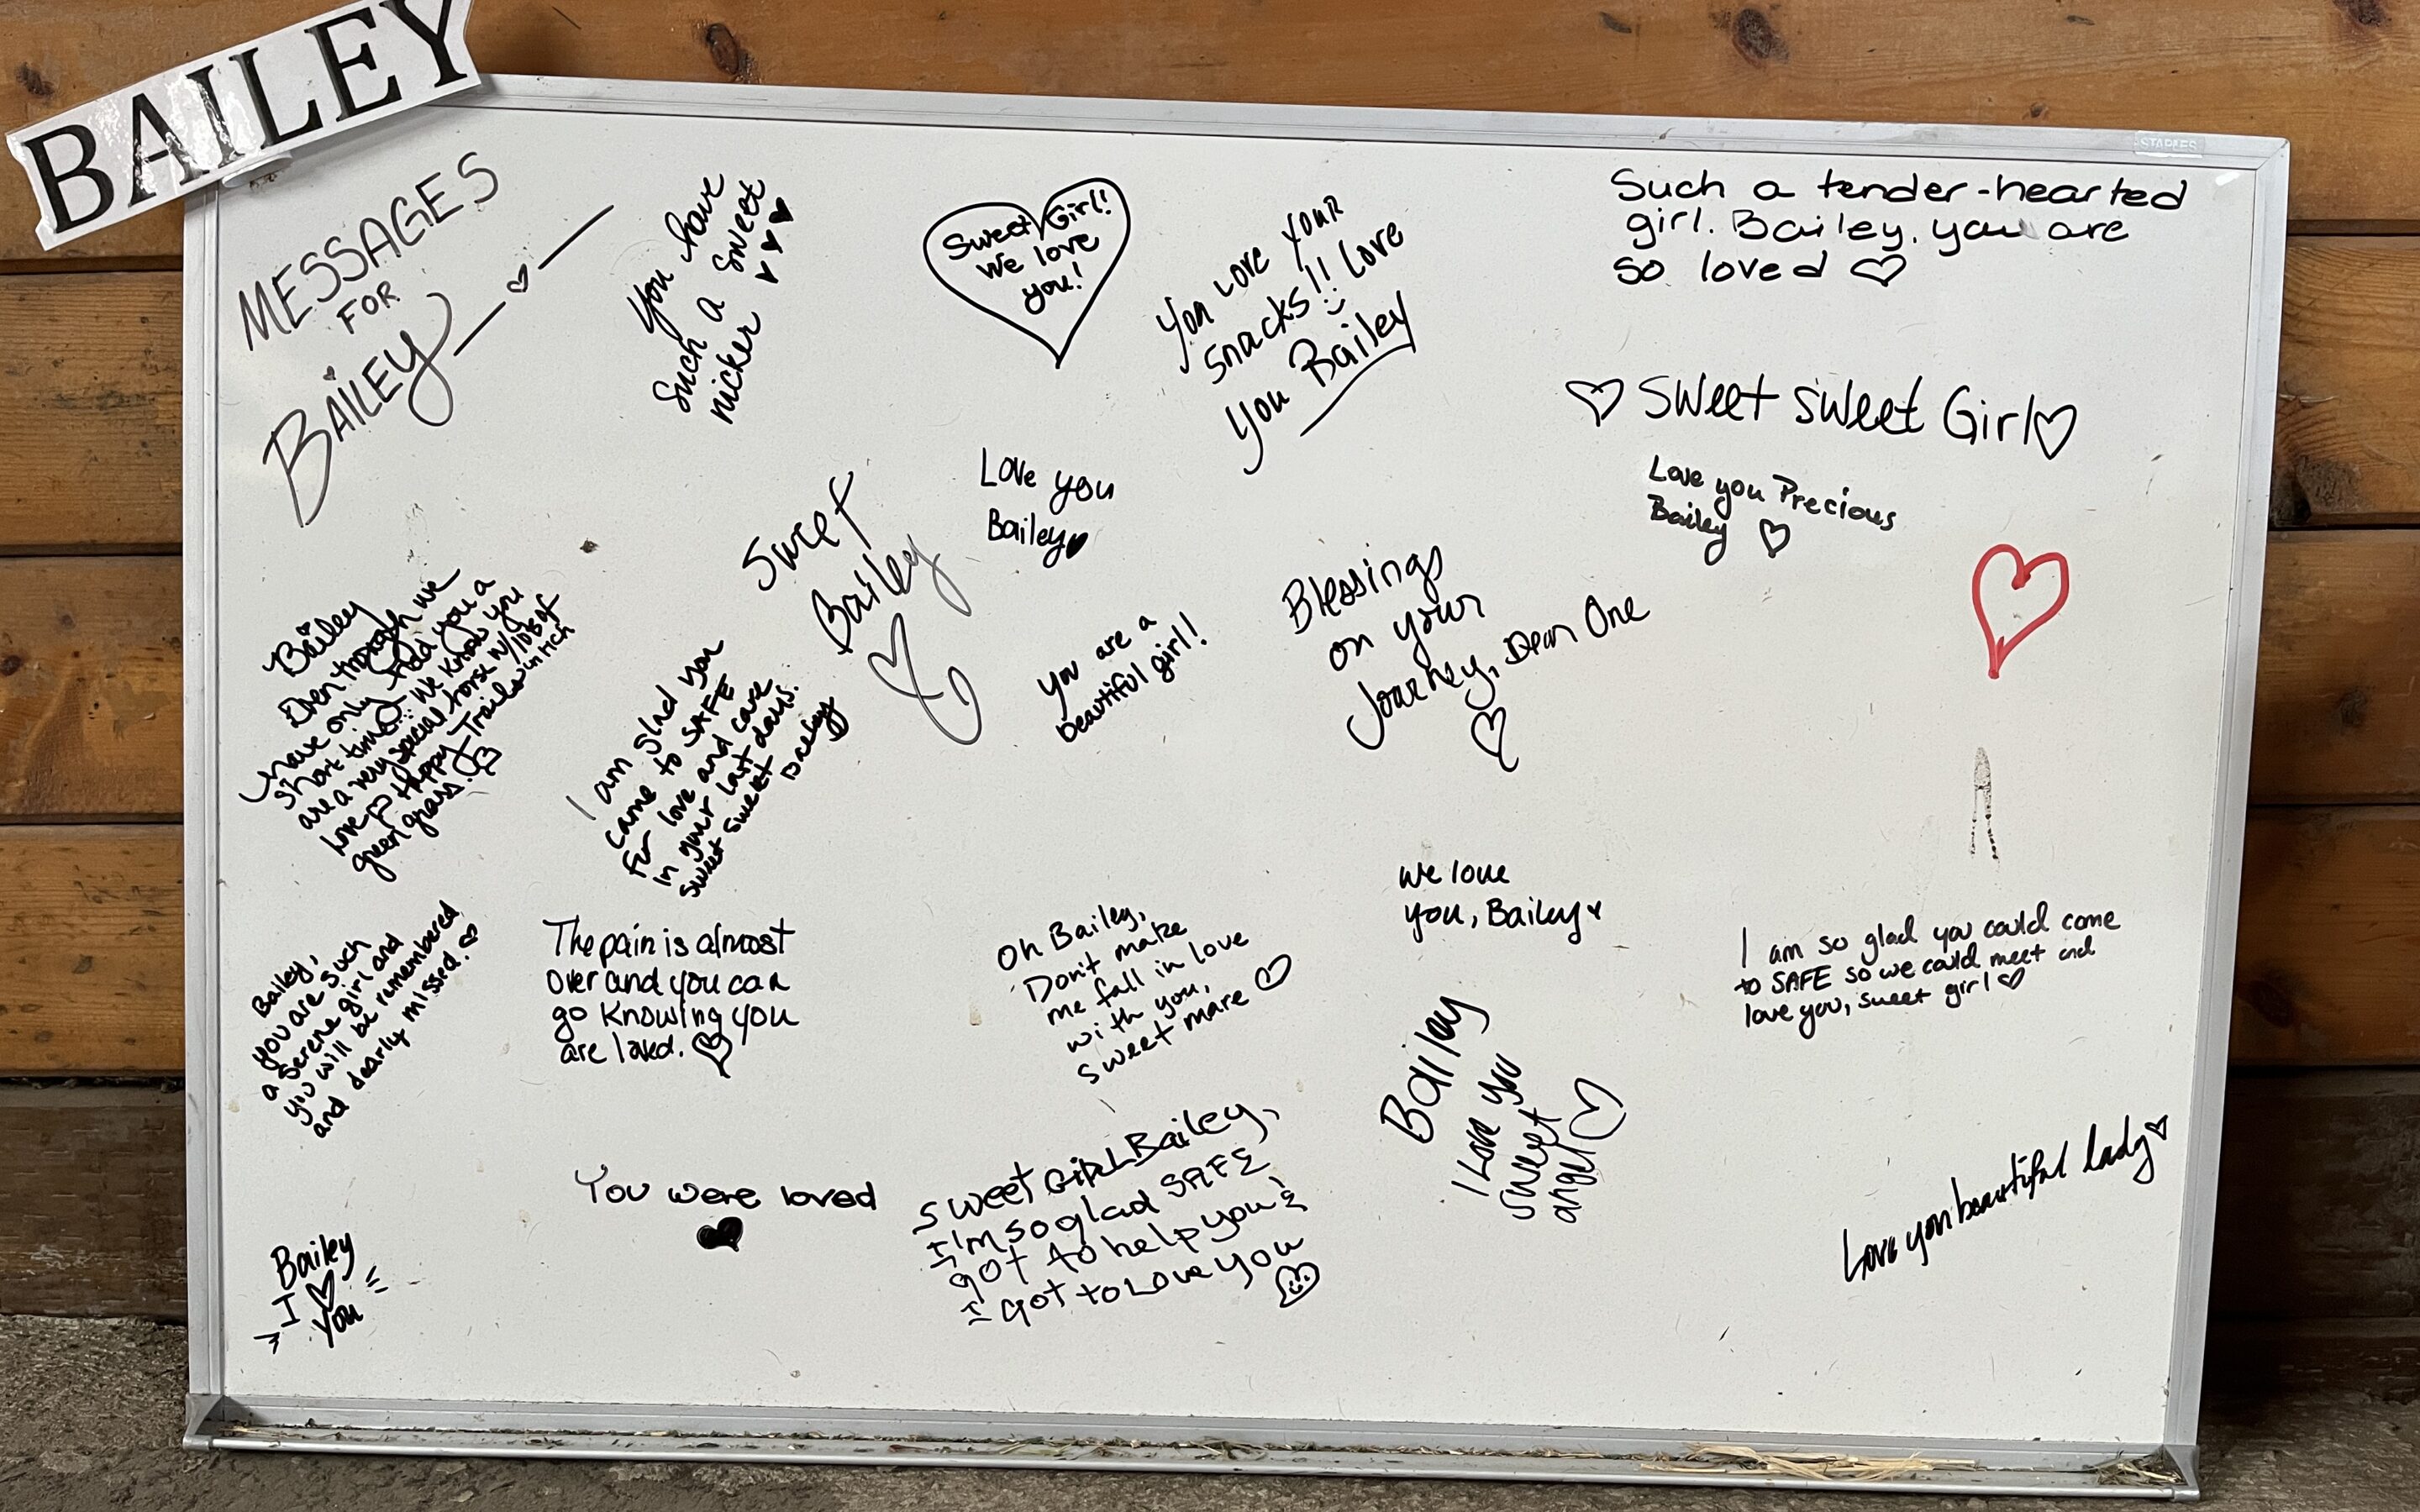 BAILEY
STAPLES
MESSAGES
FOR
BAILEY
You have
Such a sweet
nicker
Sweet Girl!
We love
you!
You love your
snacks!! Love
you Bailey
Such a tender-hearted
girl. Bailey, you are
so loved
Sweet sweet Girl
Love you Precious
Bailey
Love you
Bailey
Sweet
Bailey
Blessings
on your
Journey, Dear One
you are a
beautiful girl!
Bailey
Even though we
have only had you a
short time... We know you
are a very special horse w/ lots of
love Happy Trails in rich
green grass.
I am glad you
came to SAFE
for love and care
in your last days.
Sweet sweet Bailey
We love
you, Bailey
Bailey,
you are such
a serene girl and
you will be remembered
and dearly missed.
The pain is almost
over and you can
go knowing you
are loved.
Oh Bailey,
Don't make
me fall in love
with you,
sweet mare
I am so glad you could come
to SAFE so we could meet and
love you, sweet girl
Bailey
I Love you
sweet
angel
You were loved
Sweet GIRL Bailey,
I'm so glad SAFE
got to help you &
I got to Love you
Love you beautiful lady
Bailey
I
you